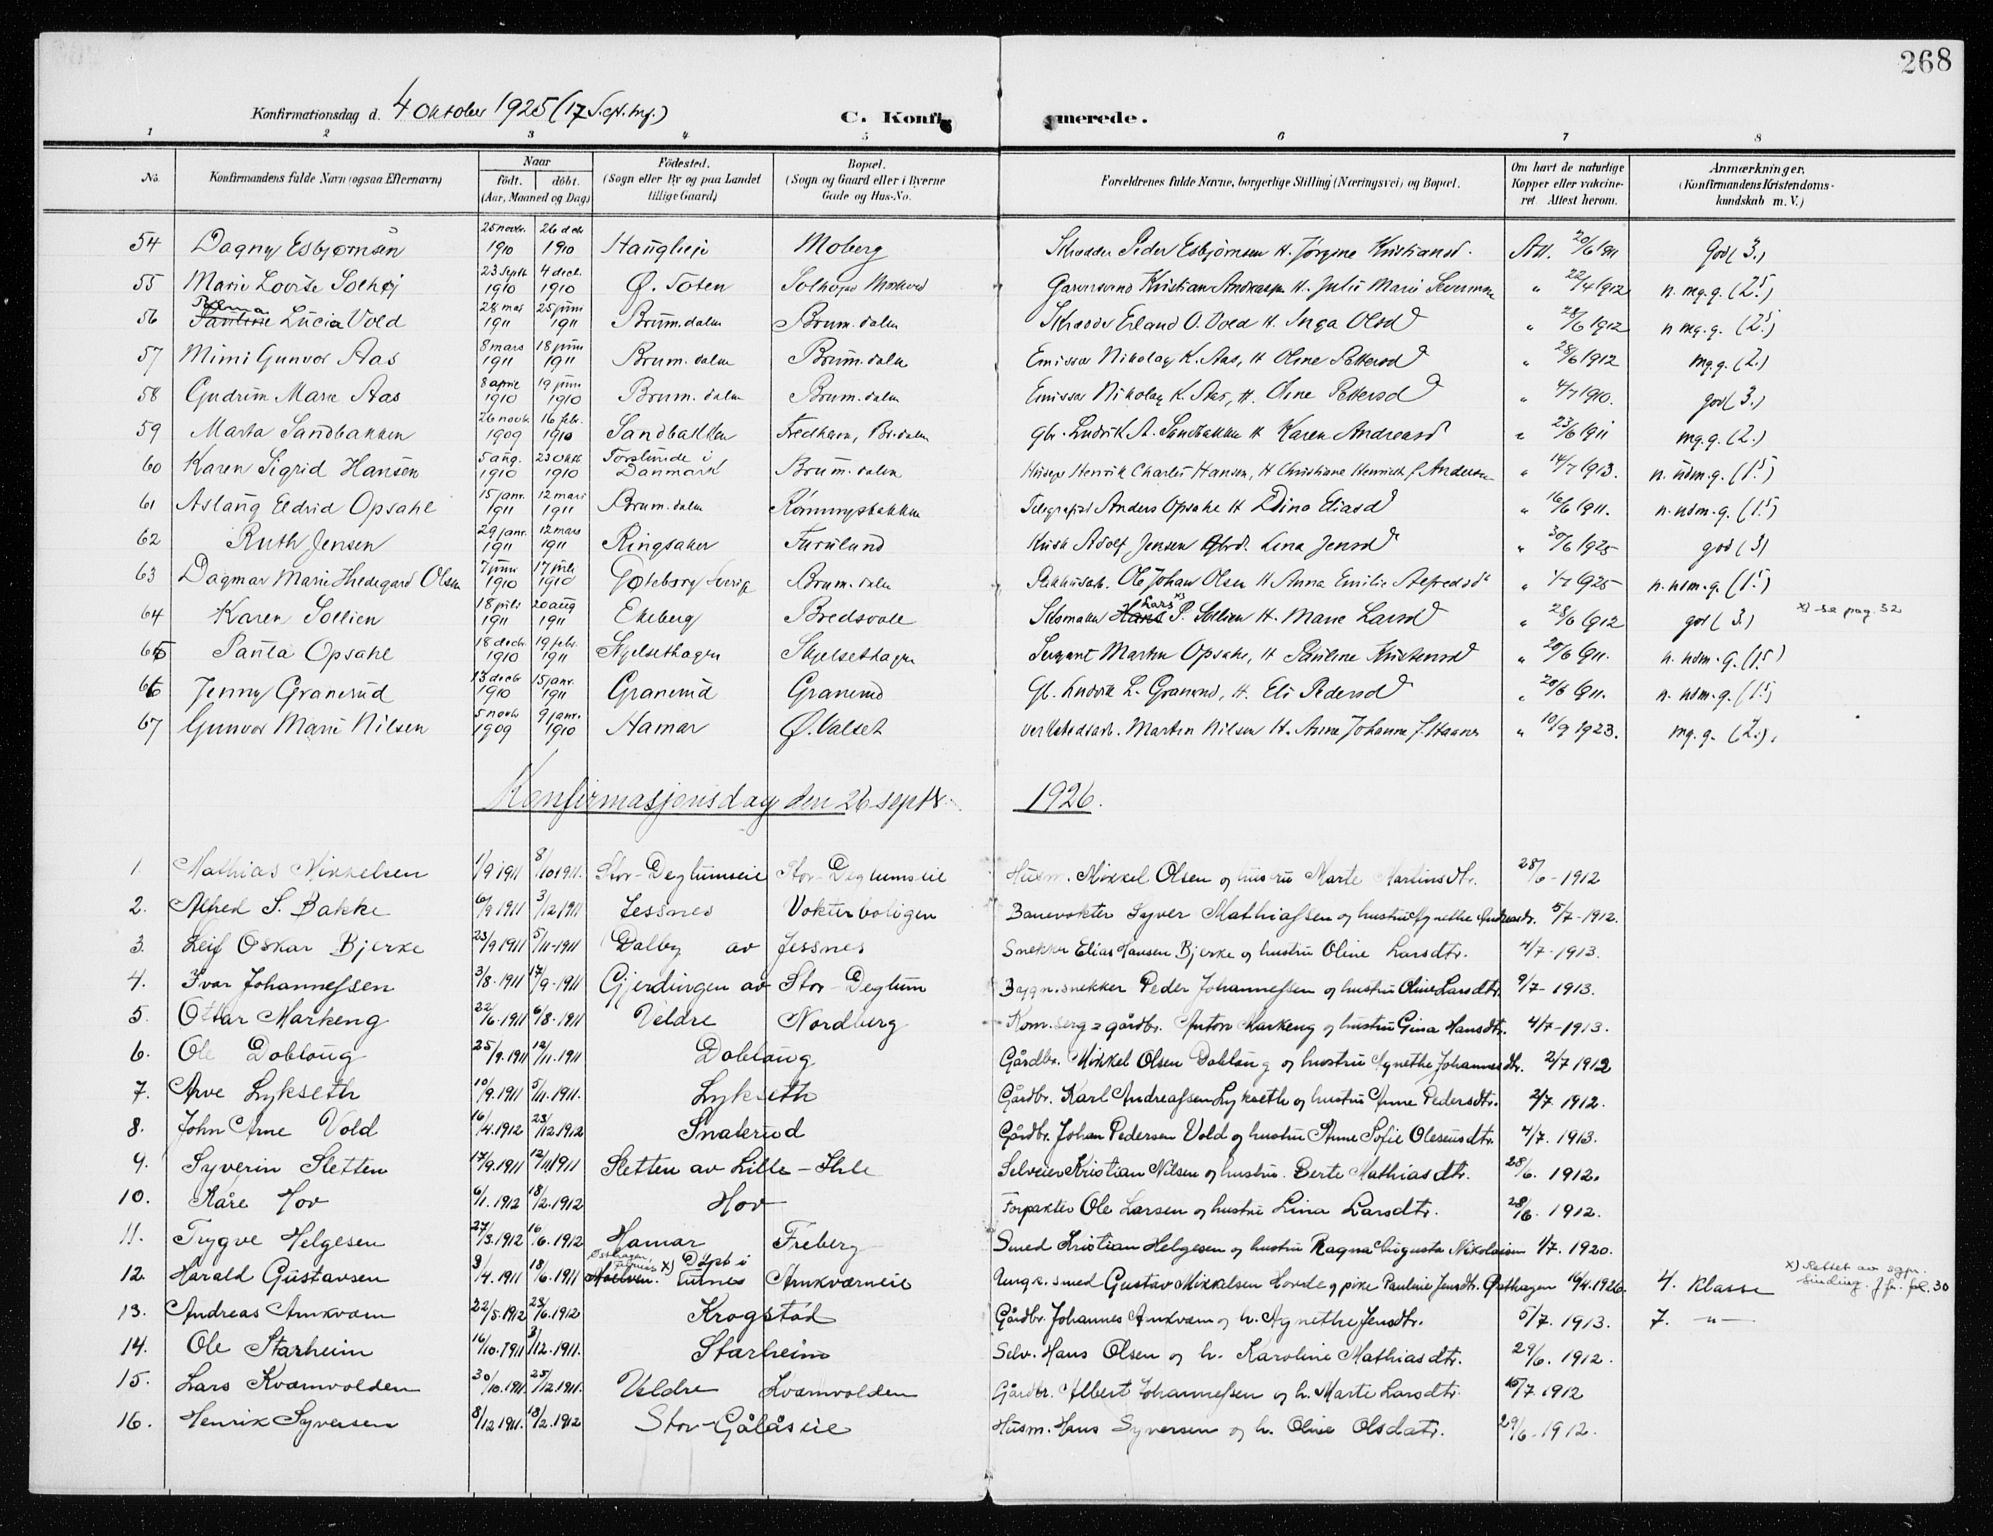 268
Konfirmationsdag d. 4 Oktober 1925 (17 Sept. beg.) C. Konfirmerede.
1 2 3 4 5 6 7 8
No. Konfirmandens fulde Navn (ogsaa Efternavn) Naar født. døbt. (Aar, Maaned og Dag) Fødested. (Sogn eller By og paa Landet tillige Gaard) Bopæl. (Sogn og Gaard eller i Byerne Gade og Hus-No. Forældrenes fulde Navne, borgerlige Stilling (Næringsvei) og Bopæl. Om havt de naturlige Kopper eller vaccineret. Attest herom. Anmærkninger. (Konfirmandens Kristendomskundskab m. V.)
54 Dagny Esbjørnsen 25 novbr. 1910 26 decbr 1910 Hauglieje Moberg Skrædder Peder Esbjørnsen H. Jørgine Kristiansd. Att. 20/6 1911 God (3.)
55 Marie Lovise Solhøj 23 Septb 1910 4 dec. 1910 Ø. Toten Solhøj Kristian Andreassen H. Julie Marie Severinsen " 22/4 1912 n. mg. g. (2.5)
56 Pauline Lucia Vold 28 mar 1911 25 juni 1911 Brum.dalen Brum.dalen Skrædder Erland O. Vold H. Inga Olsd " 28/6 1912 n mg. g. (2.5)
57 Mimi Gunvor Aas 8 mars 1911 18 juni 1911 Brum.dalen Brum.dalen Emissær Nikolay K. Aas, H Oline Pettersd " 28/6 1912 mg.g. (2.)
58 Gudrun Marie Aas 8 april 1910 19 juni 1910 Brum.dalen Brum.dalen Emissær Nikolay K. Aas, H. Oline Pettersd " 4/7 1910. god (3.)
59 Marta Sandbakken 26 novb. 1909 16 febr. 1910 Sandbakken Fredheim, Br.dalen Gbr. Ludvik A. Sandbakken H Karen Andreasd " 23/6 1911 mg.g. (2.)
60 Karen Sigrid Hansen 5 aug. 1910 23 Oktb 1910 Torslunde i Danmark Brum.dalen Henrik Charles Hansen, H Christiane Henriette f. Andersen " 14/7 1913. n. udm. g. (1.5)
61 Aslaug Eldrid Opsahl 15 janr. 1911 12 mars 1911 Brum.dalen Rønningbakken Telegrafist Anders Opsahl H Dina Eliasd " 16/6 1911. n. udm. g. (1.5)
62 Ruth Jensen 29 janr. 1911 12 mars 1911 Ringsaker Furulund Kusk Adolf Jensen Lina Jensd " 30/6 1925 god (3)
63 Dagmar Marie Hildegard Olsen 7 juni 1910 17 juli 1910 Gøteborg Sverige Brum.dalen Ole Johan Olsen H Anna Emilie Alfredsd " 1/7 1925 n. udm. g. (1.5)
64 Karen Sollien 18 juli 1911 20 aug 1911 Ekeberg Bredsvole Hans Lars x) P. Sollien H. Marie Larsd " 28/6 1912 god (3.) x) se pag. 32
65 Paula Opsahl 18 decbr. 1910 19 febr. 1911 Skjelsethagen Skjelsethagen Sergeant Martin Opsahl, H Pauline Kristensd " 20/6 1911. n. udm. g. (1.5)
66 Jenny Granerud 13 decbr 1910 15 janr. 1911 Granerud Granerud Gb. Ludvik L. Granerud, H. Eli Pedersd " 20/6 1911. n. udm. g. (1.5)
67 Gunvor Marie Nilsen 5 novbr 1909 9 janr. 1910 Hamar Ø. Valset Verkstedsarb. Martin Nilsen H. Anne Johanne f. Haaner " 10/9 1923. mg. g. (2.).
Konfirmasjonsdag den 26 septbr. 1926.
1 Mathias Mikkelsen 1/9 1911 8/10 1911. Stor-Deglumseie Stor-Deglumseie Husm. Mikkel Olsen og hustru Marte Martinsdtr. 28/6-1912
2. Alfred S. Bakke 6/9 1911 3/12 1911 Jessnes Vokterboligen Banevokter Syver Mathiassen og hustru Agnethe Andreasdtr. 5/7-1912.
3. Leif Oskar Bjerke 23/9 1911 5/11-1911 Dalby av Jessnes Snekker Elias Hansen Bjerke og hustru Oline Larsdtr. 4/7-1913.
4. Ivar Johannessen 3/8-1911 17/9-1911 Gjerdingen av Stor-Deglum Bygn.snekker Peder Johannessen og hustru Oline Larsdtr. 9/7-1913.
5. Ottar Markeng 22/6.1911 6/8-1911 Veldre Nordberg Kom.serg. & gårdbr. Anton Markeng og hustru Gina Hansdtr. 4/7-1913.
6. Ole Doblaug 25/9.1911 12/11.1911 Doblaug Gårdbr. Mikkel Olsen Doblaug og hustru Agnethe Johannesdtr. 2/7 1912
7. Arve Lykseth 10/9.1911 5/11.1911. Lykseth Gårdbr. Karl Andreassen Lykseth og hustru Anne Pedersdtr. 2/7 1912.
8. John Arne Vold 16/4.1912 23/12 1912 Snakerud Gårdbr. Johan Pedersen Vold og hustru Anne Sofie Olesensdtr. 4/7. 1913.
9. Syverin Sletten 17/9.1911 12/11 1911 Sletten av Lille-Ihle Selveier Kristian Nilsen og hustru Berte Mathiasdtr. 28/6. 1912.
10. Kåre Hov 6/1. 1912 18/2. 1912 Hov Forpakter Ole Larsen og hustru Lina Larsdtr. 28/6. 1912.
11. Trygve Helgesen 27/3.1912 16/6.1912 Hamar Freberg Smed Kristian Helgesen og hustru Ragna Augusta Nikolaisen 1/7. 1920.
12. Harald Gustavsen 9/4.1911 18/6.1911 Østhagen Furnes x) Moelven. Døpt i Furnes Arnkværneie Ungk. smed Gustav Mikkelsen Hovde og pike Pauline Jensdtr. Østhagen 16/4.1926. 4. klasse x) Rettet av sgpr. Binding. Jfr. fol. 30
13. Andreas Arnkværn 22/5.1912 23/6.1912 Krogstad Gårdbr. Johannes Arnkværn og h. Agnethe Jensdtr. 5/7. 1913. 7. —"—
14. Ole Starheim 16/10.1911 3/12.1911. Starheim Selv. Hans Olsen og h. Karoline Mathiasdtr. 29/6. 1912.
15. Lars Kvarnvolden 30/10.1911. 25/12.1911. Veldre Kvarnvolden Gårdbr. Albert Johannessen og h. Marte Larsdtr. 15/7 1912
16. Henrik Syversen 8/12 1911. 18/2. 1912 Stor-Gålåseie Husm. Hans Syversen og h. Oline Olsdatr. 29/6-1912.